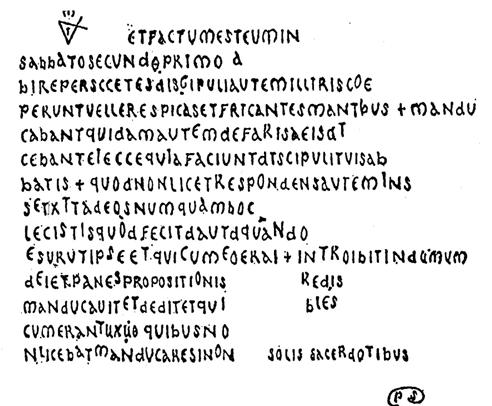 ETFACTUMESTEUMIN
SABBATOSECUNDOPRIMO A
BIREPERSCCETESDISGIPULIAUTEMILLITRISCOE
PERUNTVELLERESPICASETFRICANTESMANTBUS + MANDU
CABANTQUIDAMAUTEMDEFARISAEISDT
CEBANTEIECCEQUIAFACIUNTDTSCIPULITUISAB
BATIS + QUODNONLICETRESPONDENSAUTEMINS
SETXTTADEOSNUMQUAMBOC
LECISTISQUODFECITDAUTDQUANDO
ESURUTIPSEETQUICUMEOERAI + INTROIBITINDUMUM
DEIETPANESPROPOSITIONIS REDIS
MANDUCAUITETDEDITETQUI BLES
CUMERANTUXUO QUIBUSNO
NLICEBATMANDUCARESINON SOLIS SACERDOTIBUS
PS